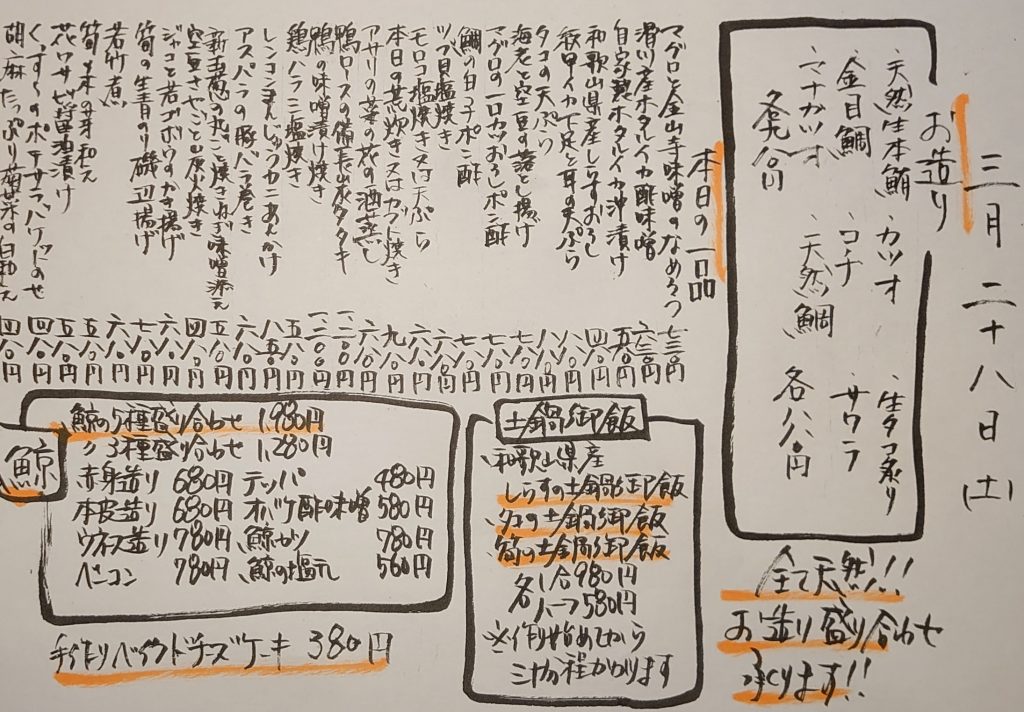 三月二十八日(土)
お造り
、天然生本鮪 、カツオ 、生タコ造り
、金目鯛 、コチ 、サワラ
、マナガツオ 、天然鯛
各八八〇円
全て天然!!
お造り盛り合わせ
承ります!!
本日の一品
マグロと金山寺味噌のなめろう 七三〇円
滑川産ホタルイカ酢味噌 六三〇円
自家製ホタルイカ沖漬け 五八〇円
和歌山県産しらすおろし 四八〇円
紋甲イカゲ足と耳の天ぷら
タコの天ぷら
海老と空豆の落とし揚げ
マグロの一口カツおろしポン酢
鯛の白子ポン酢
ツブ貝塩焼き
モロコ塩焼き又は天ぷら
本日の荒炊き又はカブト焼き
アサリの菜の花の酒蒸し
鴨ロースの備長炭タタキ
鴨の味噌漬け焼き
鶏ハラミ塩焼き
レンコンまんじゅうカニあんかけ
アスパラの豚バラ巻き
新玉葱の丸ごと焼きねぎ味噌添え
空豆さやごと山原焼き
ジャコと若ゴボウのかき揚げ
筍の生青のり磯辺揚げ
若竹煮
筍の木の芽和え 五八〇円
花ワサビ醤油漬け 五八〇円
くずし〜のポテサラバケットのせ 四八〇円
胡麻たっぷり菊菜の白和え 四八〇円
鯨
鯨の5種盛り合わせ 1,980円
〃 3種盛り合わせ 1,280円
赤身造り 680円 テッパ 480円
本皮造り 680円 オバケ酢味噌 580円
ウネス造り 780円 、鯨カツ 780円
ベーコン 780円 、鯨の塩てし 560円
手作りベイクドチーズケーキ 380円
土鍋御飯
、和歌山県産
しらすの土鍋御飯
、タコの土鍋御飯
、筍の土鍋御飯
各1合980円
ハーフ580円
※作り始めてから
三十分程かかります